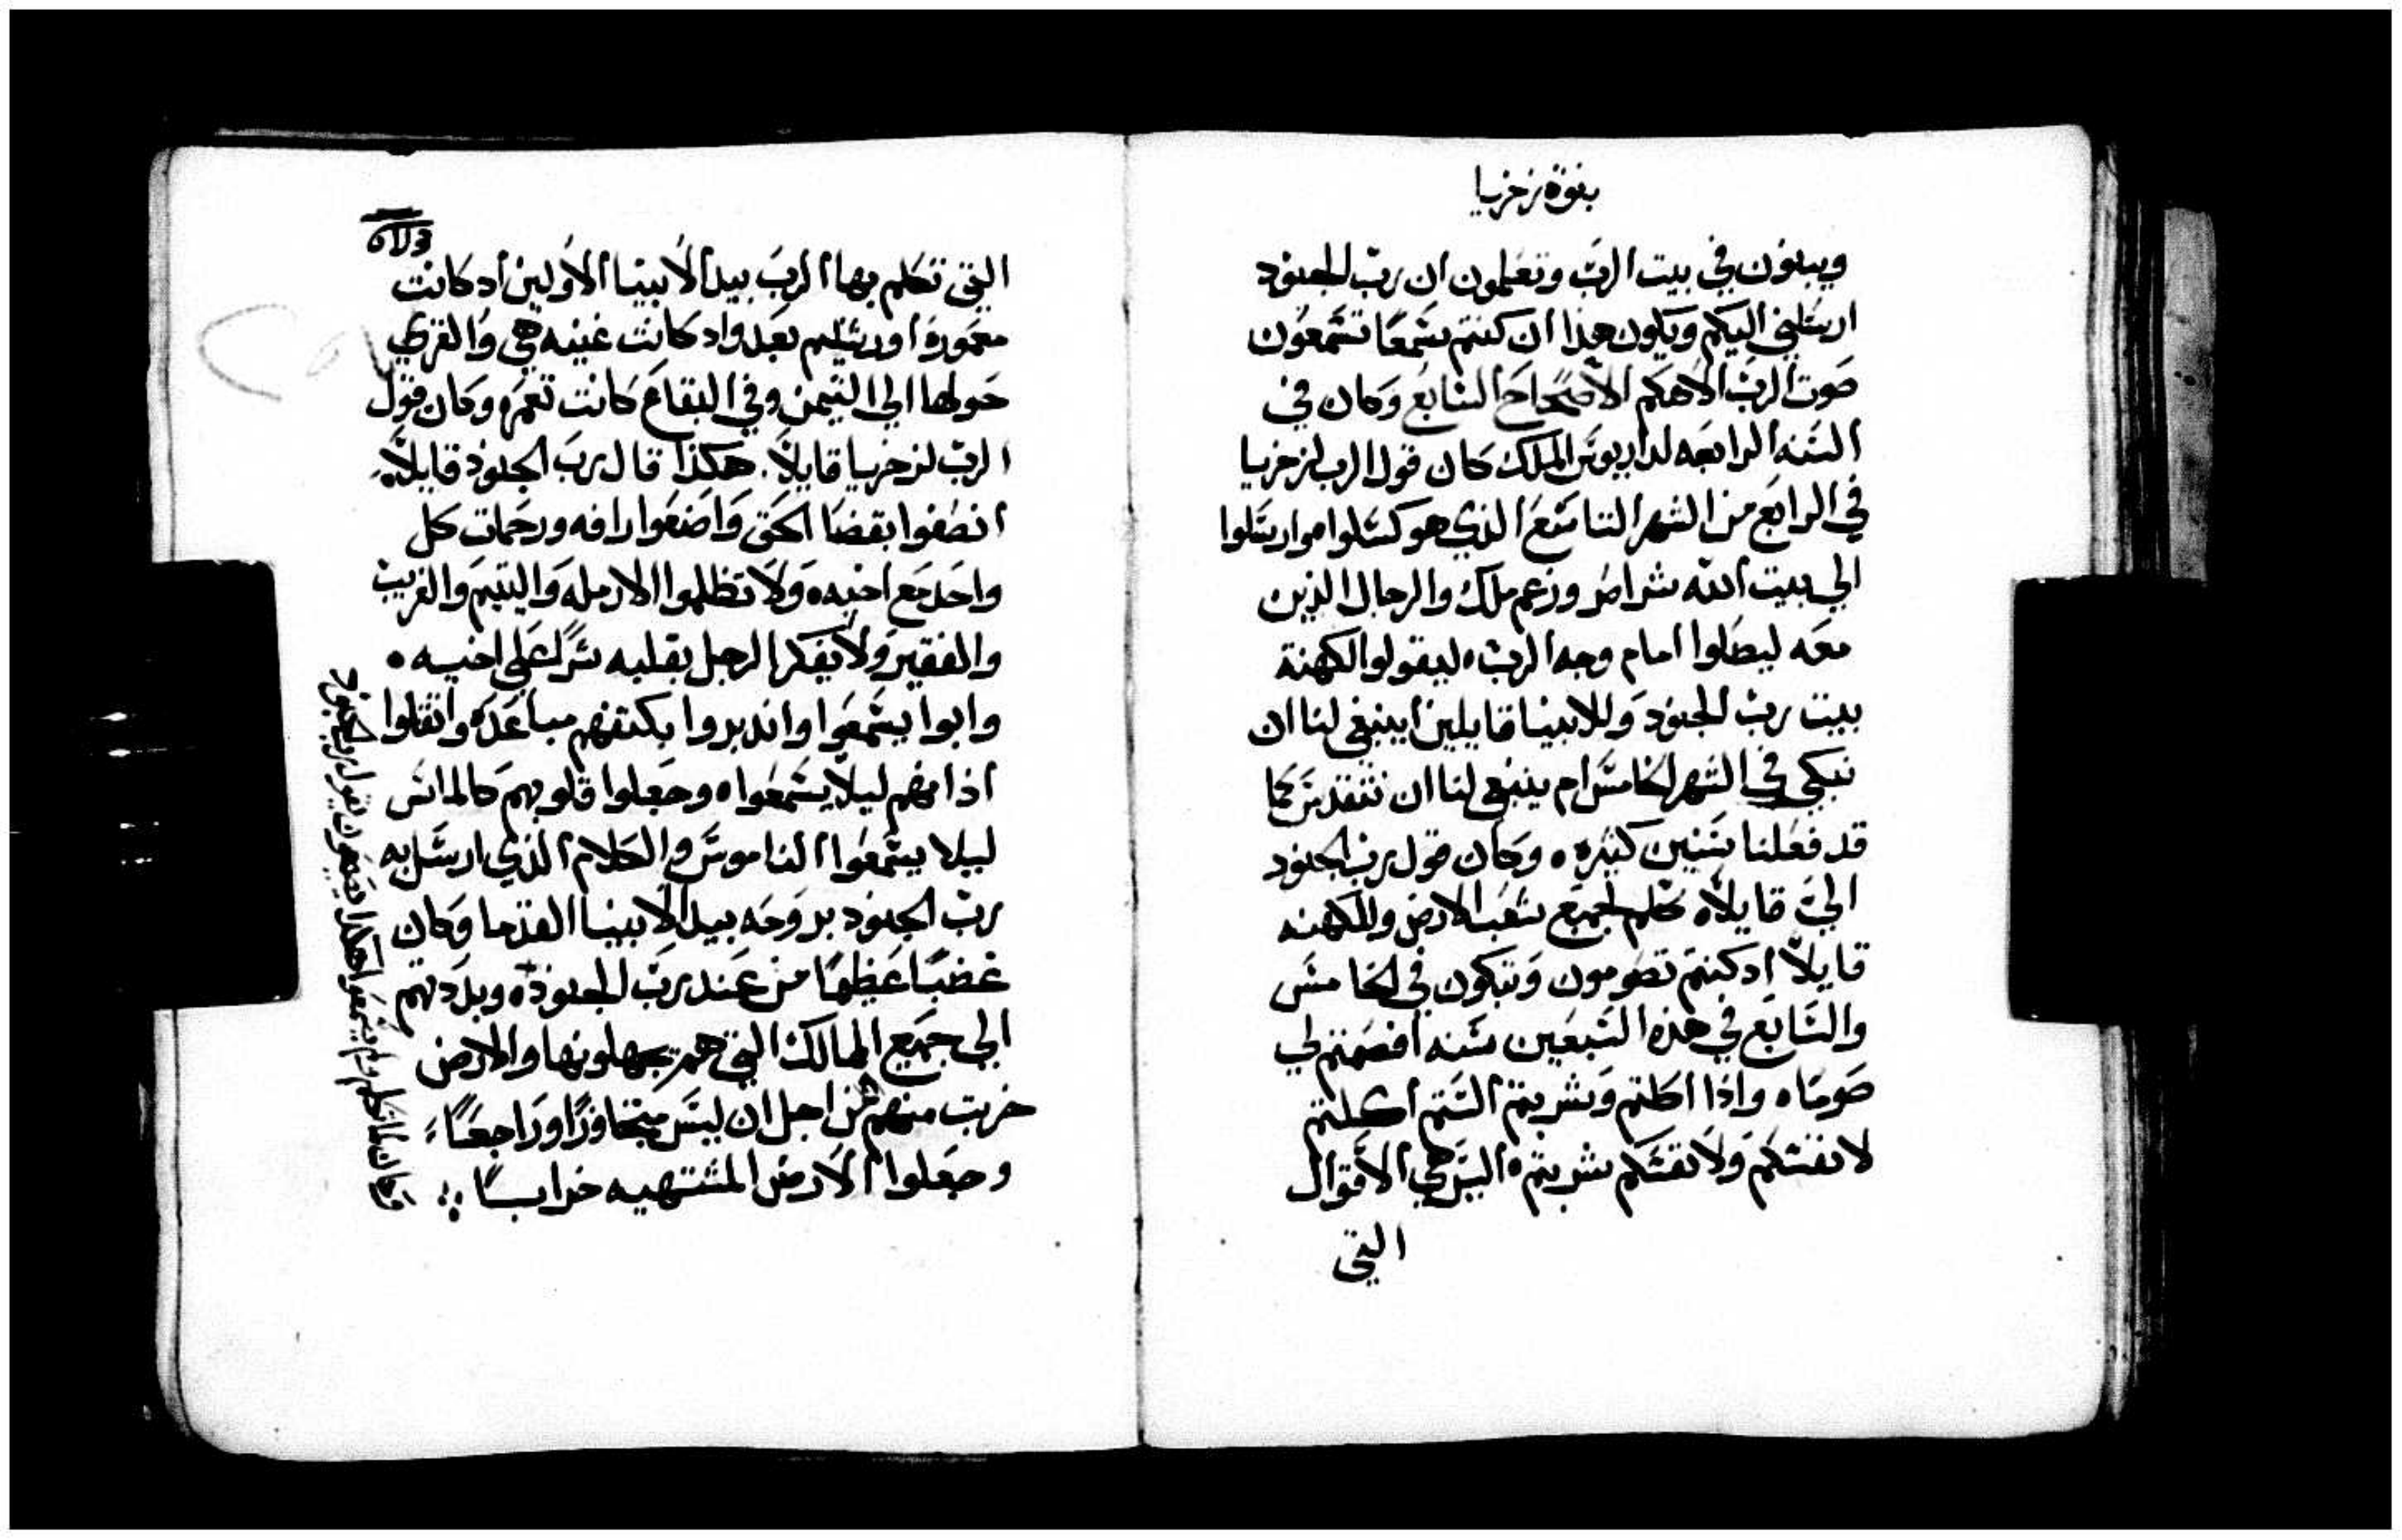 بنوة زخريا
ويبنون في بيت الرب وتعلمون ان رب الجنود
ارسلني اليكم ويكون هذا ان كنتم سمعا تسمعون
صوت الرب الاهكم الاصحاح السابع وكان في
السنه الرابعه لداريوس الملك كان قول الرب لزخريا
في الرابع من الشهر التاسع الذي هو كسلوا موارسلوا
الي بيت الله شراصر وزعم ملك والرجال الذين
معه ليصلوا امام وجه الرب، ليقولوا الكهنة
بيت رب الجنود وللانبيا قايلين اينبغي لنا ان
نبكي في الشهر الخامس ام ينبغي لنا ان نتقدس كما
قد فعلنا سنين كثيره ه وكان قول رب الجنود
الي قايلاً ه كلم لجميع شعب الارض والكهنه
قايلاً اد كنتم تصومون وتبكون في الخامس
والسابع في هذه السبعين سنه افصمتم لي
صوماه واذا اكلتم وشربتم الستم اكلتم
لانفسكم ولانفسكم شربتم ه اليس هي الاقوال
التي
التي تكلم بها الرب بيد الانبيا الاولين اد كانت
معمورة اورشليم بعد واد كانت غنيه هي والقري
حولها الي التيمن وفي البقاع كانت تعمره وكان قول
الرب لزخريا قايلاً. هكذا قال رب الجنود قايلاً،
انصفوا بقضا الحق واصنعوا رافه ورحمات كل
واحد مع اخيه ه ولا تظلموا الارمله واليتيم والغريب
والفقير ولا يفكر الرجل بقلبه شراً علي اخيه ه
وابوا يسمعوا واندبروا بكتفهم مباعده واثقلوا
اذانهم ليلا يسمعوا ه وجعلوا قلوبهم كالماس
ليلا يسمعوا الناموس والكلام الذي ارسل به
رب الجنود بروحه بيد الانبيا القدما وكان
غضبًا عظيمًا من عند رب الجنود ه وبددتهم
الي جميع الممالك التي هم يجهلونها والارض
خربت منهم من اجل ان ليس متجاوزًا وراجعًا،
وجعلوا الارض المشتهيه خرابًا
وكان كما تكلم ولم يسمعوا هكذا يصرخون يقول رب الجنود